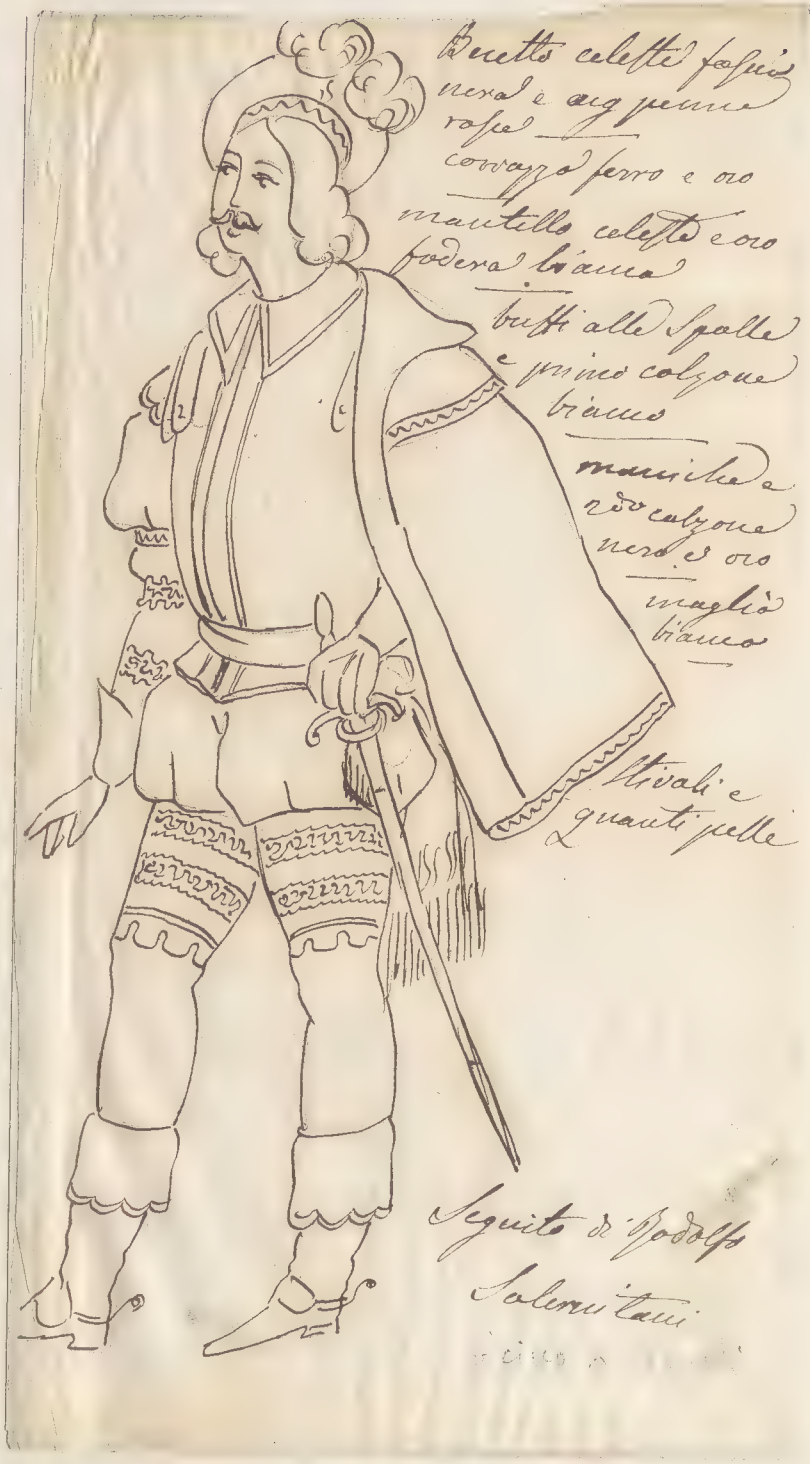 Beretto celeste fascia
nera e arg penne
rose
corrazza ferro e oro
mantello celeste e oro
fodera bianca
buffi alle Spalle
e primo calzone
bianco
maniche e
2do calzone
nero e oro
maglia
bianca
Stivali e
guanti pelle
Seguito di Rodolfo
Salernitani